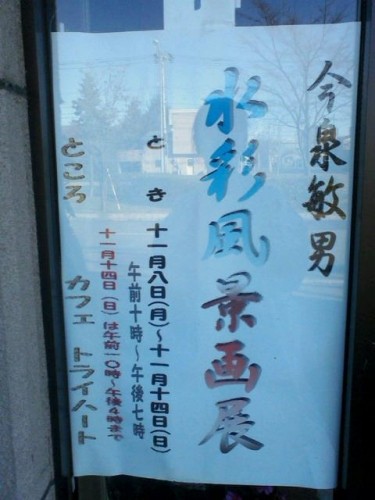 今泉敏男
水彩風景画展
とき 十一月八日(月)～十一月十四日(日)
午前十時～午後七時
十一月十四日(日)は午前一〇時～午後4時まで
ところ カフェ トライハート